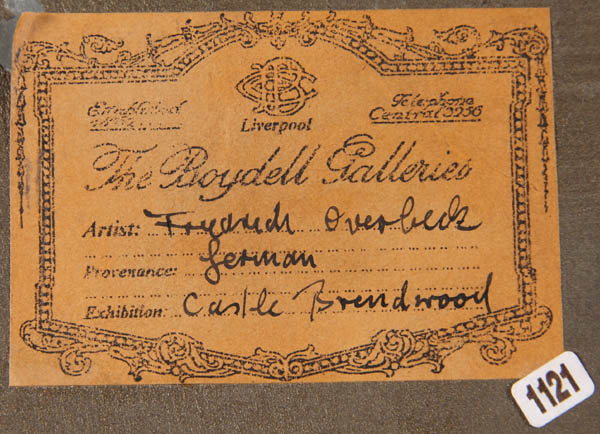 Established
Telephone
Central 3256
Liverpool
The Boydell Galleries
Artist: Fredrich Overbeck
German
Provenance:
Exhibition: Castle Brendwood
1121